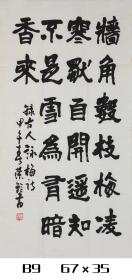 牆角數枝梅凌
寒獨自開遥知
不是雪為有暗
香來
錄古人詠梅詩
甲午
B9 67×35